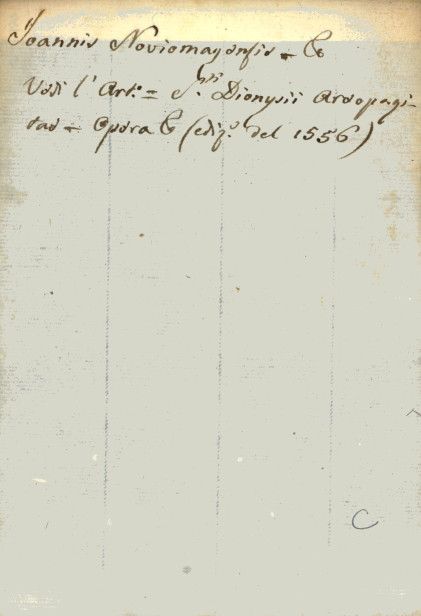 Joannis Noviomagensis = &
Vedi l'Art.º = S.ti Dionysii Areopagi-
tae = Opera & (ediz.e del 1556)
C